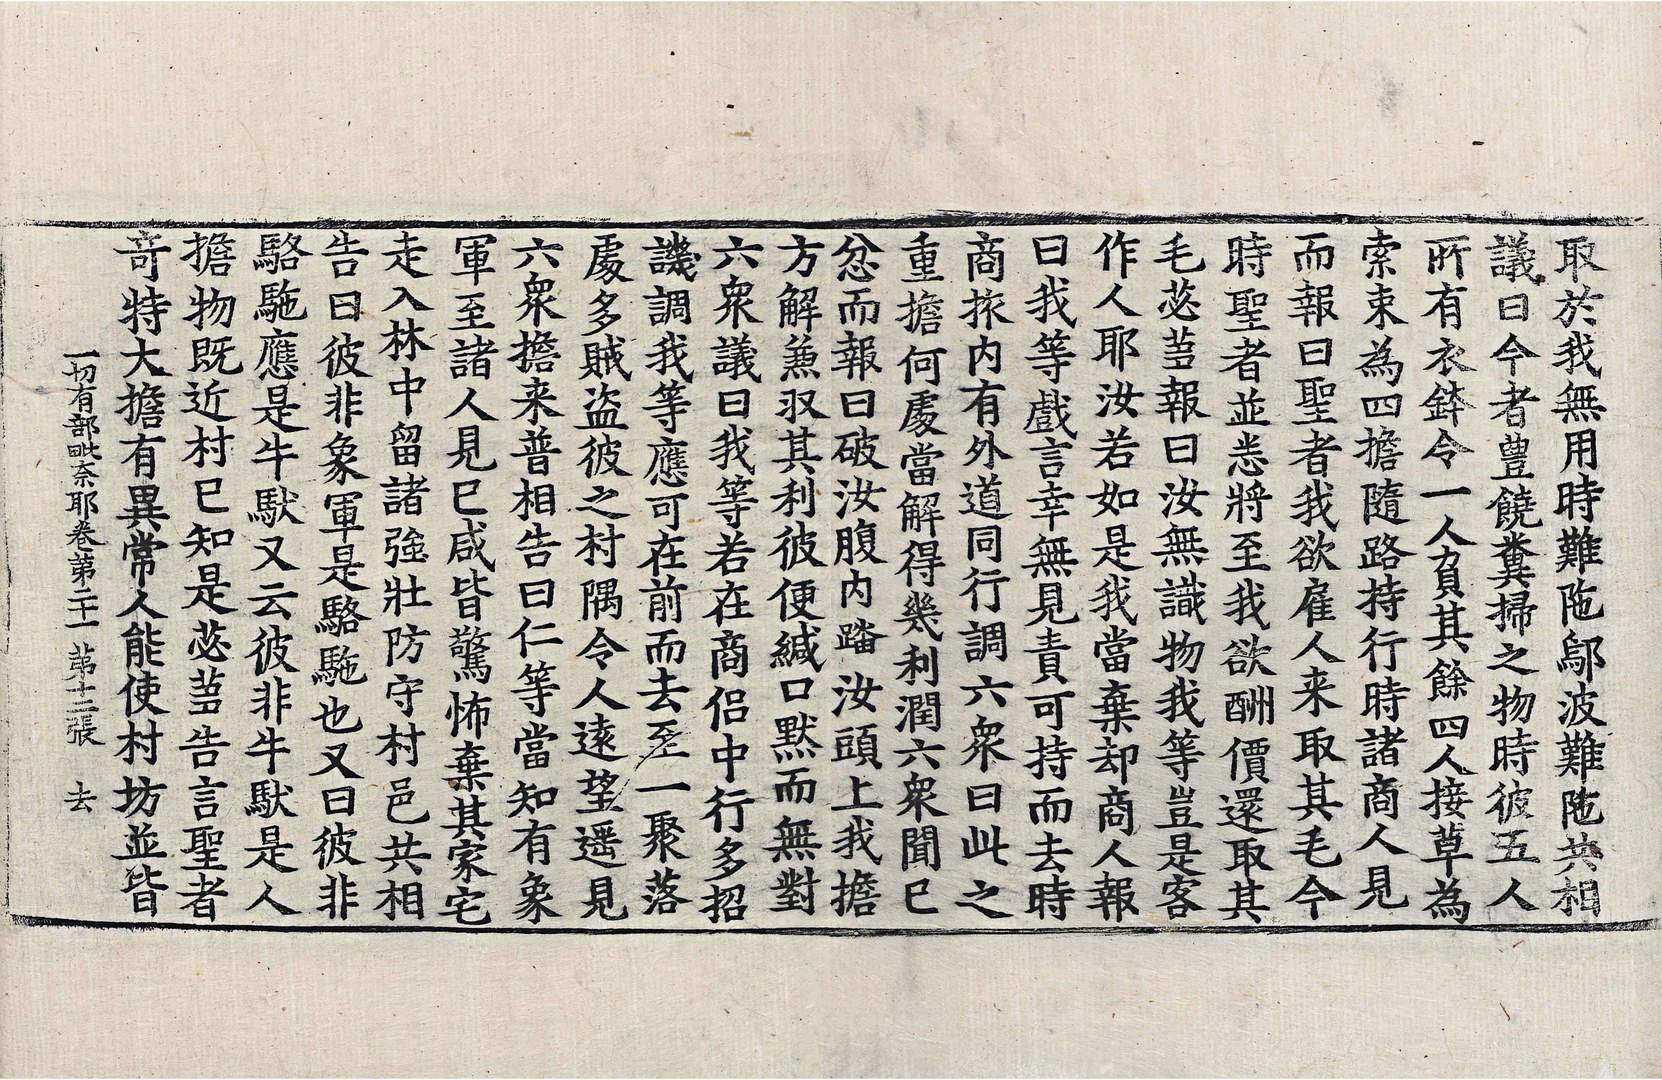 取於我無用時難陁鄔波難陁共相
議曰今者豊饒糞掃之物時彼五人
所有衣鉢令一人負其餘四人接草為
索束為四擔隨路持行時諸商人見
而報曰聖者我欲雇人来取其毛今
時聖者並悉將至我欲酬價還取其
毛苾蒭報曰汝無識物我等豈是客
作人耶汝若如是我當棄却商人報
曰我等戲言幸無見責可持而去時
商旅内有外道同行調六衆曰此之
重擔何處當解得幾利潤六衆聞已
忿而報曰破汝腹内踏汝頭上我擔
方解兼収其利彼便緘口默而無對
六衆議曰我等若在商侣中行多招
譏調我等應可在前而去至一聚落
處多賊盗彼之村隅令人遠望遥見
六衆擔来普相告曰仁等當知有象
軍至諸人見已咸皆驚怖棄其家宅
走入林中留諸強壯防守村邑共相
告曰彼非象軍是駱駞也又曰彼非
駱駞應是牛馱又云彼非牛馱是人
擔物既近村已知是苾蒭告言聖者
奇特大擔有異常人能使村坊並皆
一切有部毗奈耶卷第二十一 第十二張 去